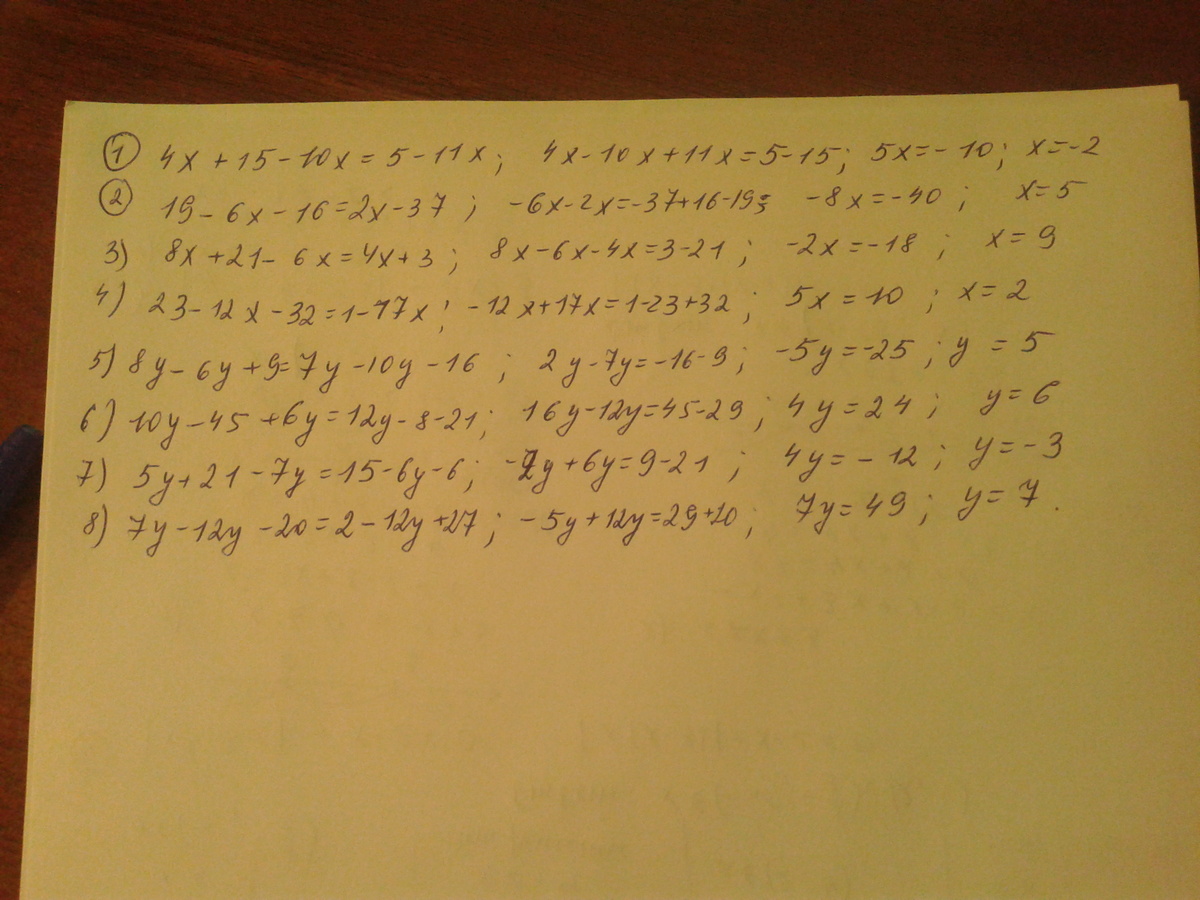 ① 4x + 15 - 10x = 5 - 11x; 4x - 10x + 11x = 5 - 15; 5x = -10; x = -2
② 19 - 6x - 16 = 2x - 37; -6x - 2x = -37 + 16 - 19; -8x = -40; x = 5
3) 8x + 21 - 6x = 4x + 3; 8x - 6x - 4x = 3 - 21; -2x = -18; x = 9
4) 23 - 12x - 32 = 1 - 17x; -12x + 17x = 1 - 23 + 32; 5x = 10; x = 2
5) 8y - 6y + 9 = 7y - 10y - 16; 2y - 7y = -16 - 9; -5y = -25; y = 5
6) 10y - 45 + 6y = 12y - 8 - 21; 16y - 12y = 45 - 29; 4y = 24; y = 6
7) 5y + 21 - 7y = 15 - 6y - 6; -2y + 6y = 9 - 21; 4y = -12; y = -3
8) 7y - 12y - 20 = 2 - 12y + 27; -5y + 12y = 29 + 20; 7y = 49; y = 7.